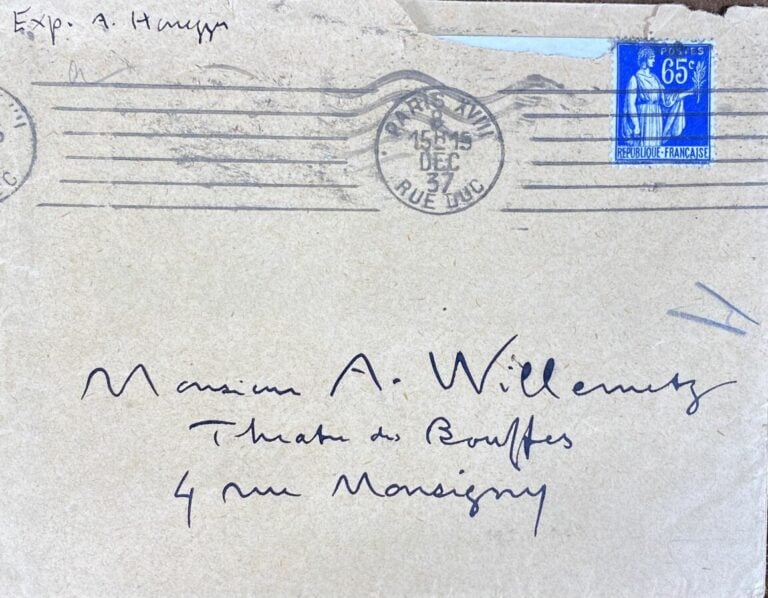 Exp. A. Honegger
POSTES
65c
REPUBLIQUE-FRANÇAISE
PARIS XVIII
8
15H15
DEC
37
RUE DUC
Monsieur A. Willemetz
Theatre des Bouffes
4 rue Monsigny